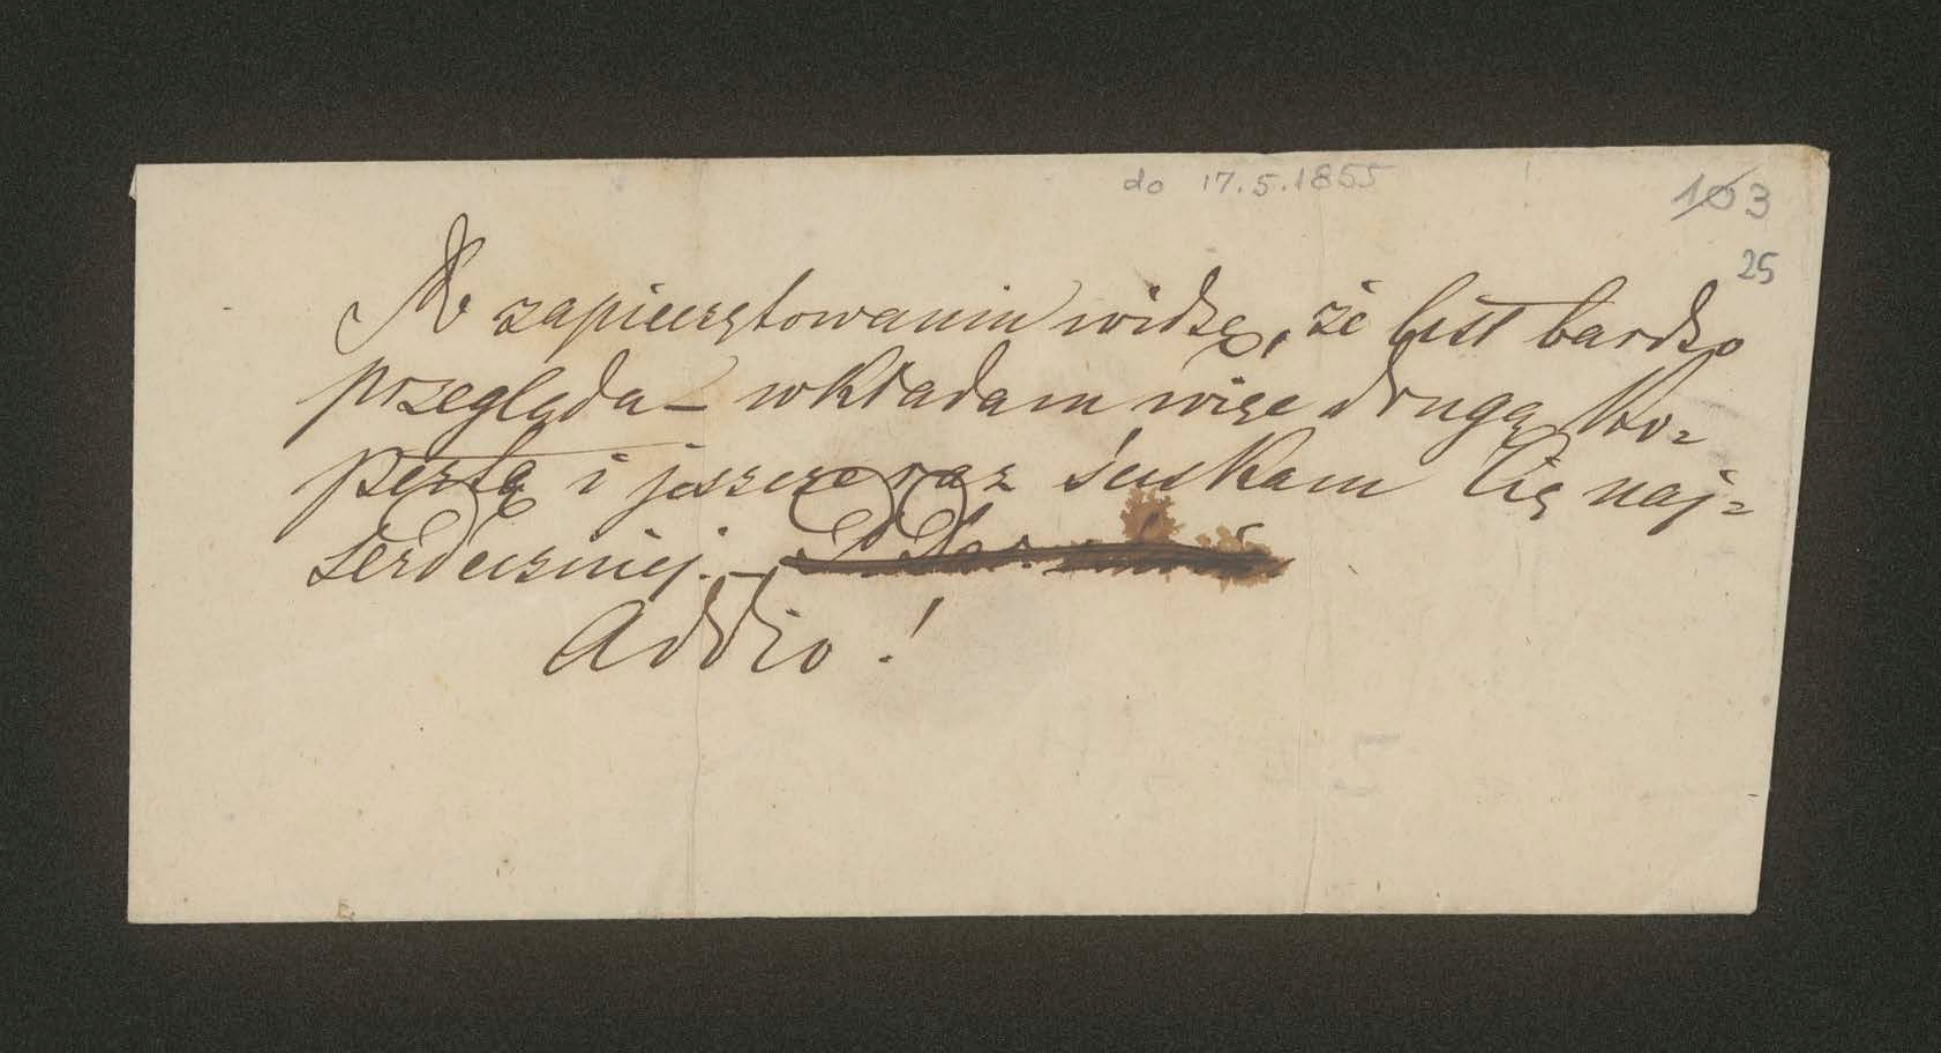 do 17.5.1855
103
25
Po zapieczętowaniu widzę, że list bardzo
przegląda – wkładam więc drugą ko=
pertę i jeszcze raz ściskam Cię naj=
serdeczniej. –
Addio!